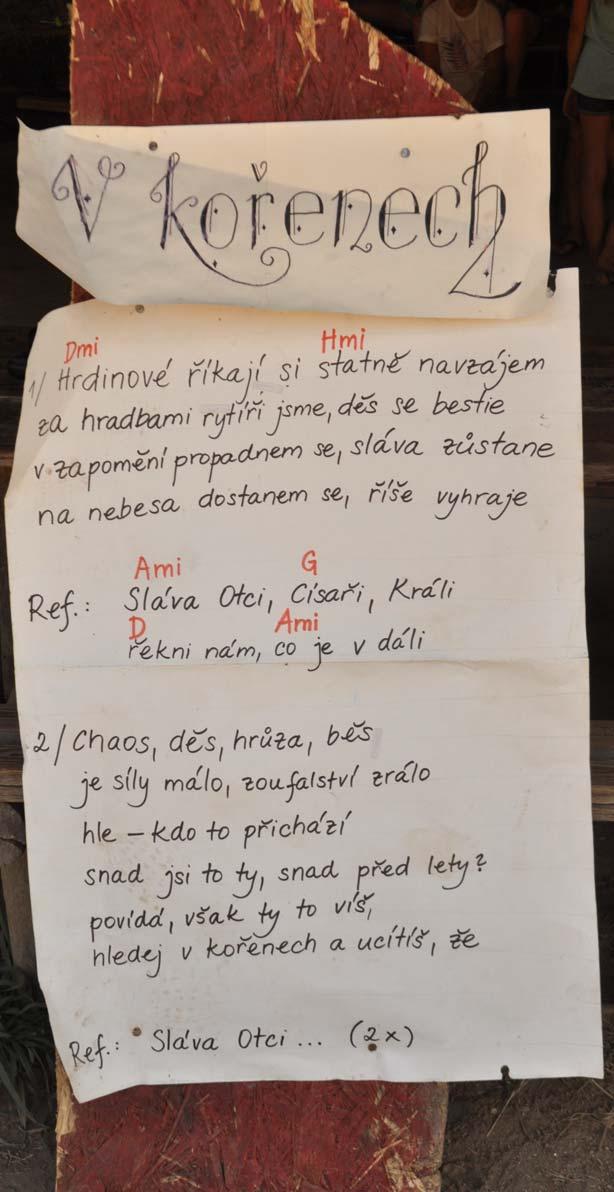 V kořenech
Dmi Hmi
1/ Hrdinové říkají si statně navzájem
za hradbami rytíři jsme, děs se bestie
v zapomění propadnem se, sláva zůstane
na nebesa dostanem se, říše vyhraje
Ami G
Ref.: Sláva Otci, Císaři, Králi
D Ami
řekni nám, co je v dáli
2/ Chaos, děs, hrůza, běs
je síly málo, zoufalství zrálo
hle – kdo to přichází
snad jsi to ty, snad před lety?
povídá, však ty to víš,
hledej v kořenech a ucítíš, že
Ref.: Sláva Otci... (2x)